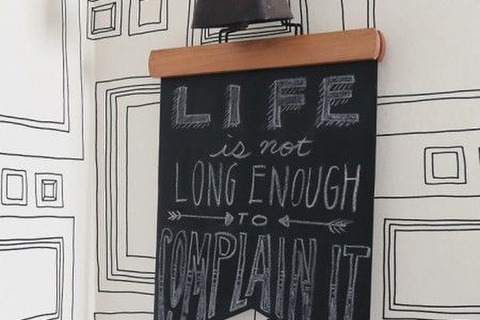 LIFE
is not
LONG ENOUGH
TO
COMPLAIN IT